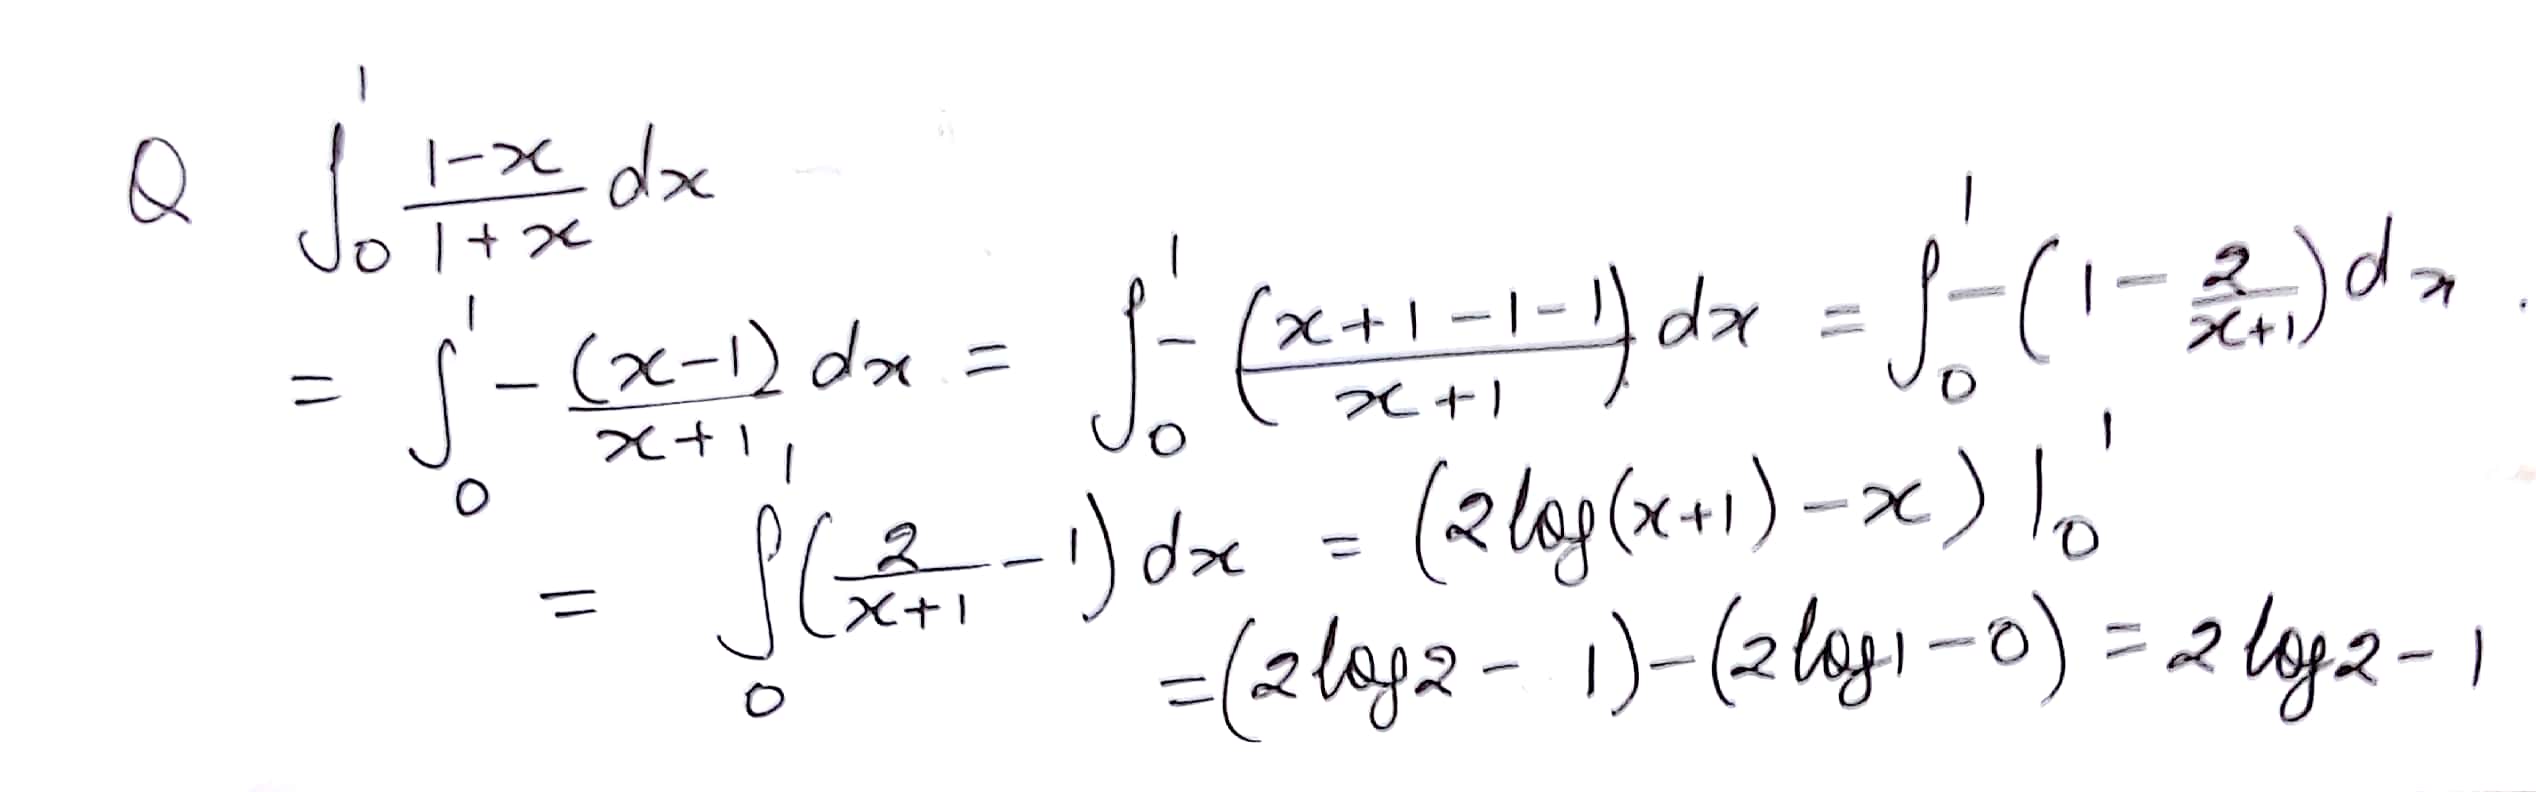 Q ∫₀¹ (1-x)/(1+x) dx
= ∫₀¹ -(x-1)/(x+1) dx = ∫₀¹ -((x+1-1-1)/(x+1)) dx = ∫₀¹ -(1 - 2/(x+1)) dx.
= ∫₀¹ (2/(x+1) - 1) dx = (2log(x+1) - x) |₀¹
= (2log2 - 1) - (2log1 - 0) = 2log2 - 1